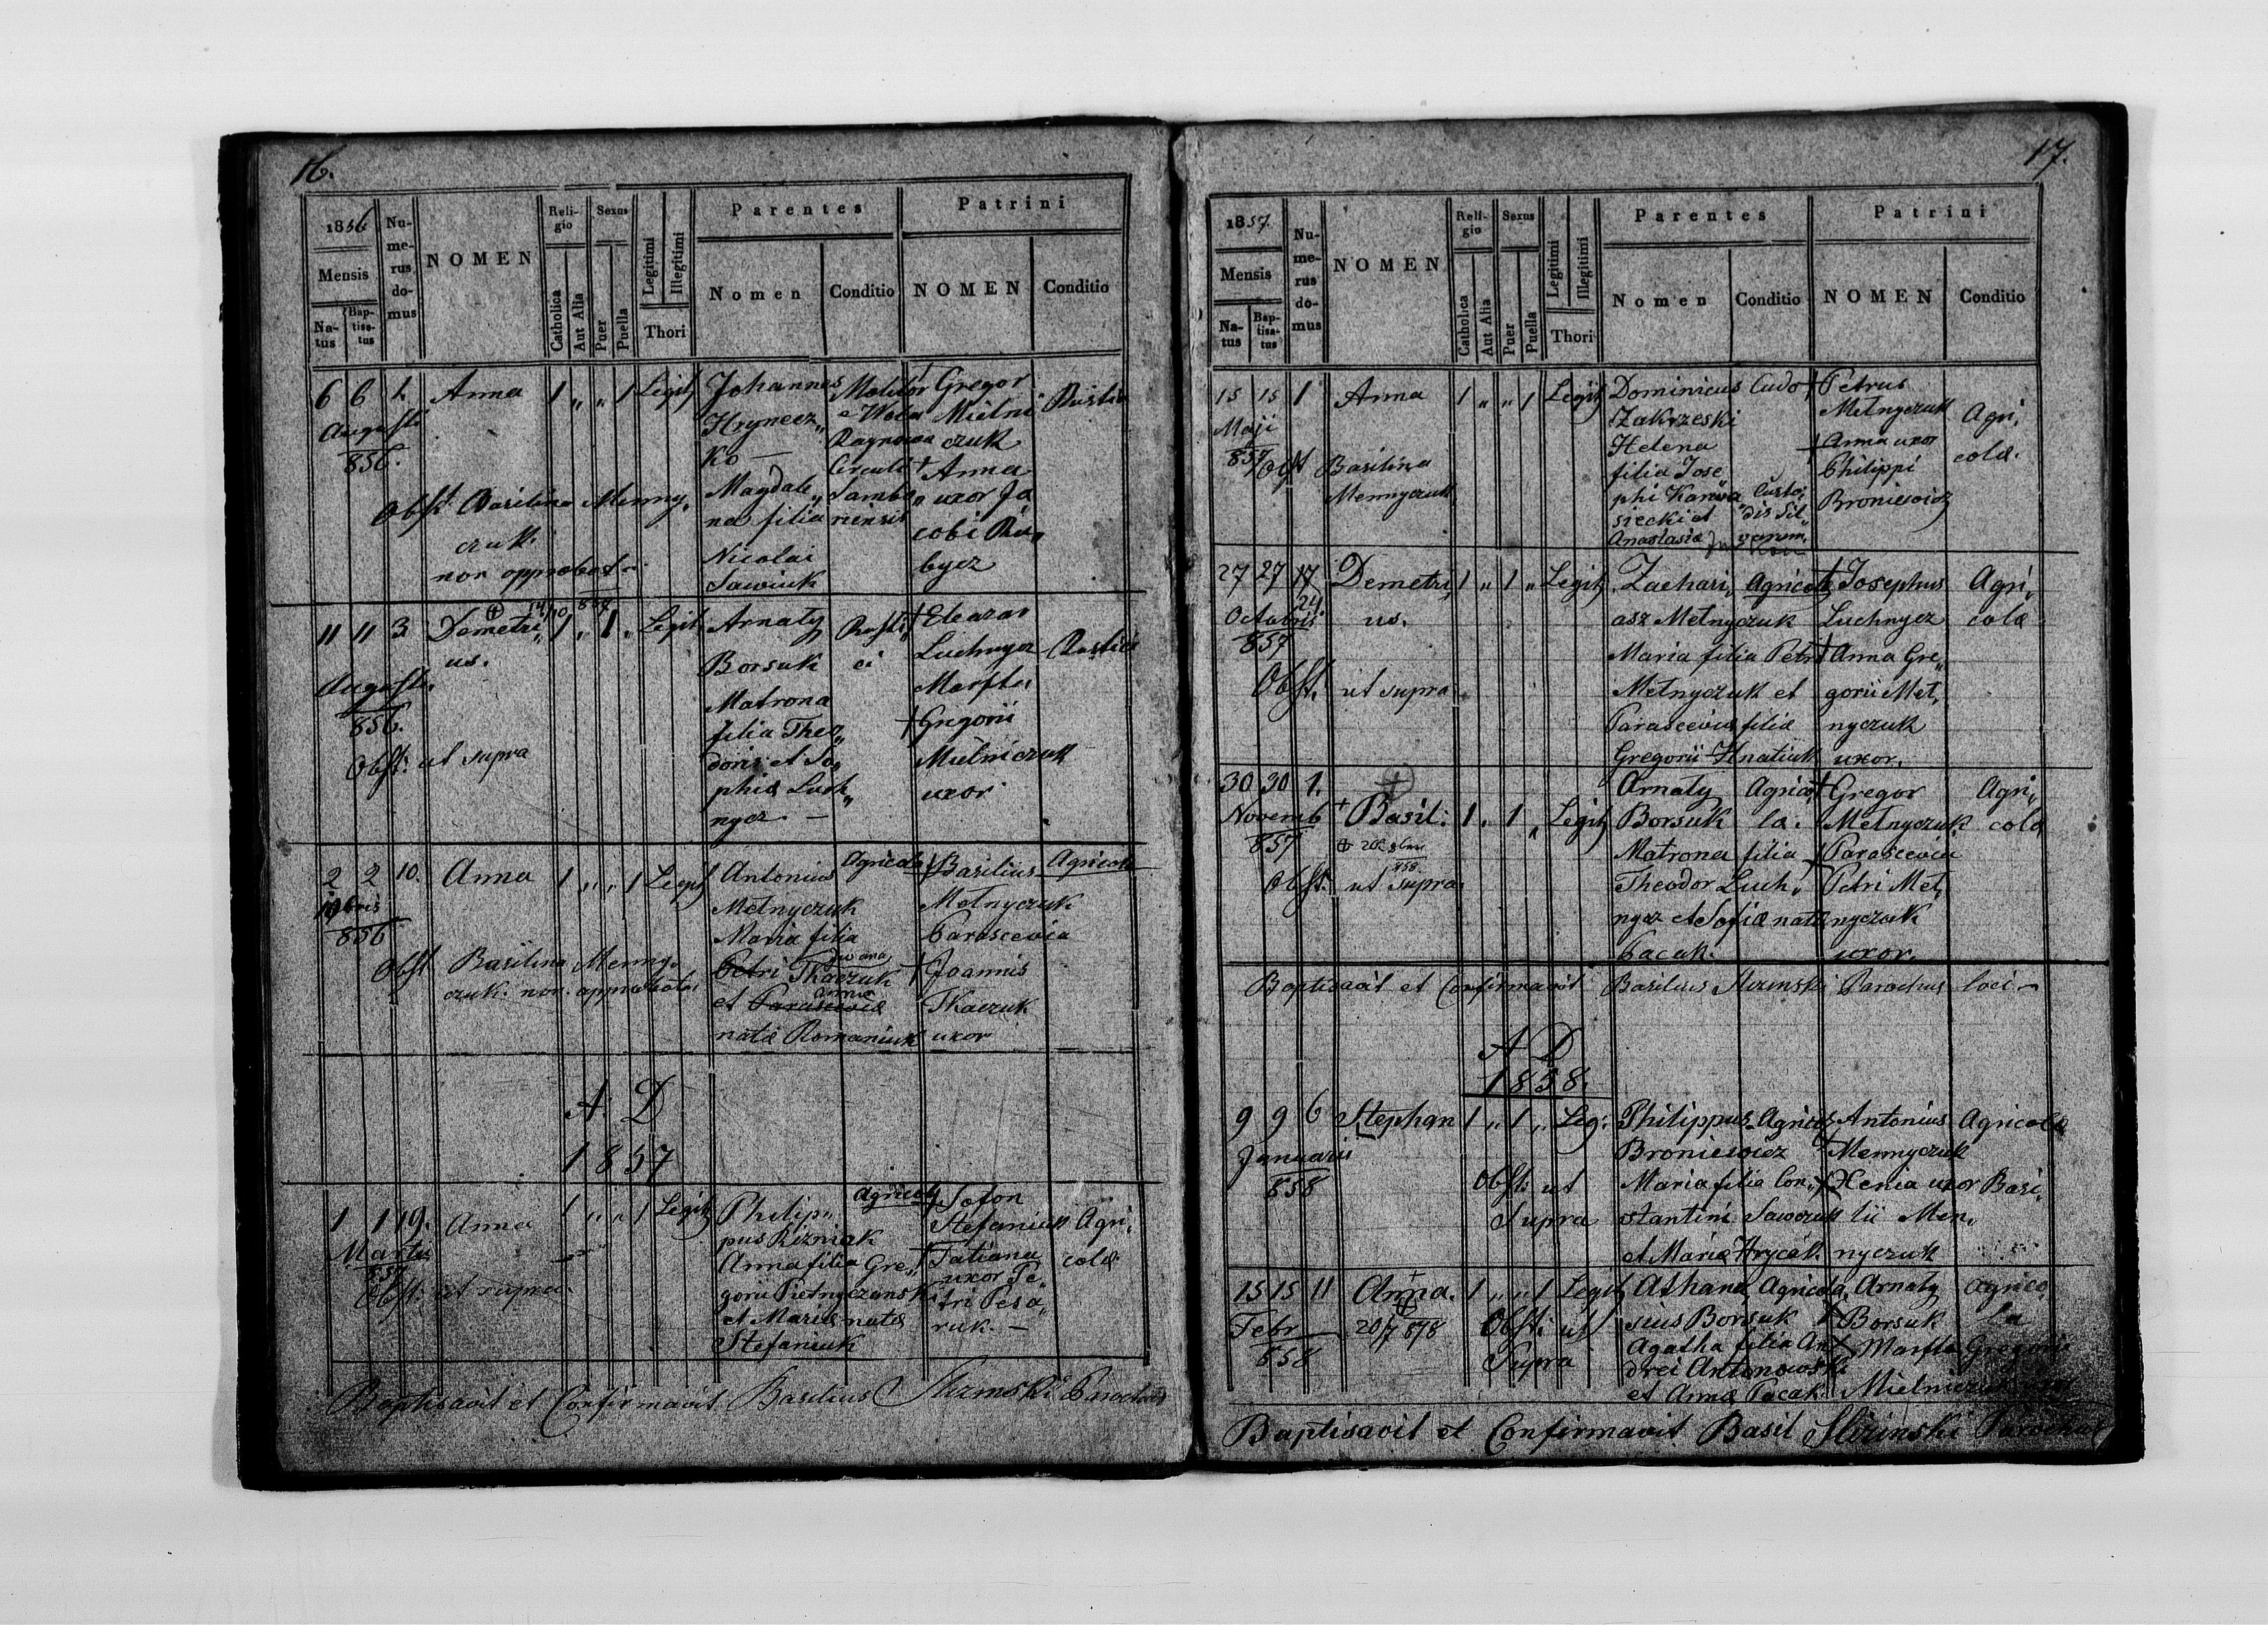 16.
1856
Mensis
Na-
tus
Bap-
tisa-
tus
Nu-
me-
rus
do-
mus
NOMEN
Reli-
gio
Catholica
Aut Alia
Sexus
Puer
Puella
Legitimi
Illegitimi
Thori
Parentes
Nomen
Conditio
Patrini
NOMEN
Conditio
6 6 Anna 1 „ „ 1 Legit
Augusti
856.
Obst. Basilina Menny„
czuk.
non approbat.
Johannes
Hrynecz„
ko —
Magdale„
na filia
Nicolai
Sawiuk
Molitor
Circuli
Sambo„
riensis
† Gregor
Mielni
czuk
† Anna
uxor Ja
cobi Ru„
bycz
11 11 3 Demetri„ 1 „ 1 „ Legit
us.
Augusti
856.
Obst: ut supra
Arnaty
Borsuk
Matrona
filia Theo„
dori et So„
phiæ Luch„
nycz. —
Rusti„
ci
† Eleazar
Luchnycz
Marfta
† Gregorii
Mielniczuk
uxor
Rustici
2 2 10. Anna 1 „ „ 1 Legit
856
Obst Basilina Menny„
czuk. non approbata
Antonius
Metnyczuk
Maria filia
Petri Tkaczuk
et Parascevia
Anna
natæ Romaniuk
Agricola
† Basilius
Metnyczuk
Parascevia
† Joannis
Tkaczuk
uxor
Agricola
A. D
1857
1 1 19. Anna 1 „ „ 1 Legit
Martii
857
Obst: ut supra.
Philip„
pus Rizniak
Anna filia Gre„
gorii Pietnyczanski
et Mariæ natæ
Stefaniuk
Agricola
† Sofon
Stefaniuk
† Tatiana
uxor Pe„
tri Pesa„
ruk. —
Agri„
colæ
Baptisavit et Confirmavit Basilius Slizinski Parochus
17.
1857.
Mensis
Na-
tus
Bap-
tisa-
tus
Nu-
me-
rus
do-
mus
NOMEN
Reli-
gio
Catholica
Aut Alia
Sexus
Puer
Puella
Legitimi
Illegitimi
Thori
Parentes
Nomen
Conditio
Patrini
NOMEN
Conditio
15 15 1 Anna 1 „ „ 1 Legit
Maji
857
Obst Basilina
Mennyczuk
Dominicus
Zakrzeski
Helena
filia Jose
phi Karwa
siecki et
Anastasiæ
Cudo
Custo„
dis Sil„
varum.
† Petrus
Metnyczuk
† Anna uxor
Philippi
Broniewicz
Agri„
colæ.
27 27 17 Demetri„ 1 „ 1 „ Legit
24.
Octobris us.
857
Obst. ut supra
Zachari„
asz Metnyczuk
Maria filia Petri
Metnyczuk et
Parasceviæ filiæ
Gregorii Hnatiuk
Agricola
† Josephus
Luchnycz
† Anna Gre„
gorii Met„
nyczuk
uxor.
Agri„
colæ
30 30 1.
Novemb † Basil: 1 „ 1 „ Legit
857
858.
Obst. ut supra
Arnaty
Borsuk
Matrona filia
Theodor Luch„
nycz et Sofiæ natæ
Pacak.
Agrico„
la.
† Gregor
Metnyczuk
† Parascevia
Petri Met„
nyczuk
uxor.
Agri„
colæ
Baptisavit et Confirmavit Basilius Slizinski Parochus loci —
A D
1858.
9 9 6 Stephan 1 „ 1 „ Leg:
Januarii
858
Obst: ut
Supra
Philippus
Broniewicz
Maria filia Con„
stantini Sawczuk
et Mariæ Hrycak
Agricola
Antonius
Mennyczuk
† Xenia uxor Basi„
lii Men„
nyczuk
Agricolæ
15 15 11 Anna. 1 „ „ 1 Legit
Febr 20/7 878
858
Obst: ut
Supra
Athana
sius Borsuk
Agatha filia An
drei Antonowski
et Annæ Pacak.
Agricola
Arnaty
† Borsuk
† Marfta Gregorii
Mielniczuk
Agrico
la
Baptisavit et Confirmavit Basil Slizinski Parochus